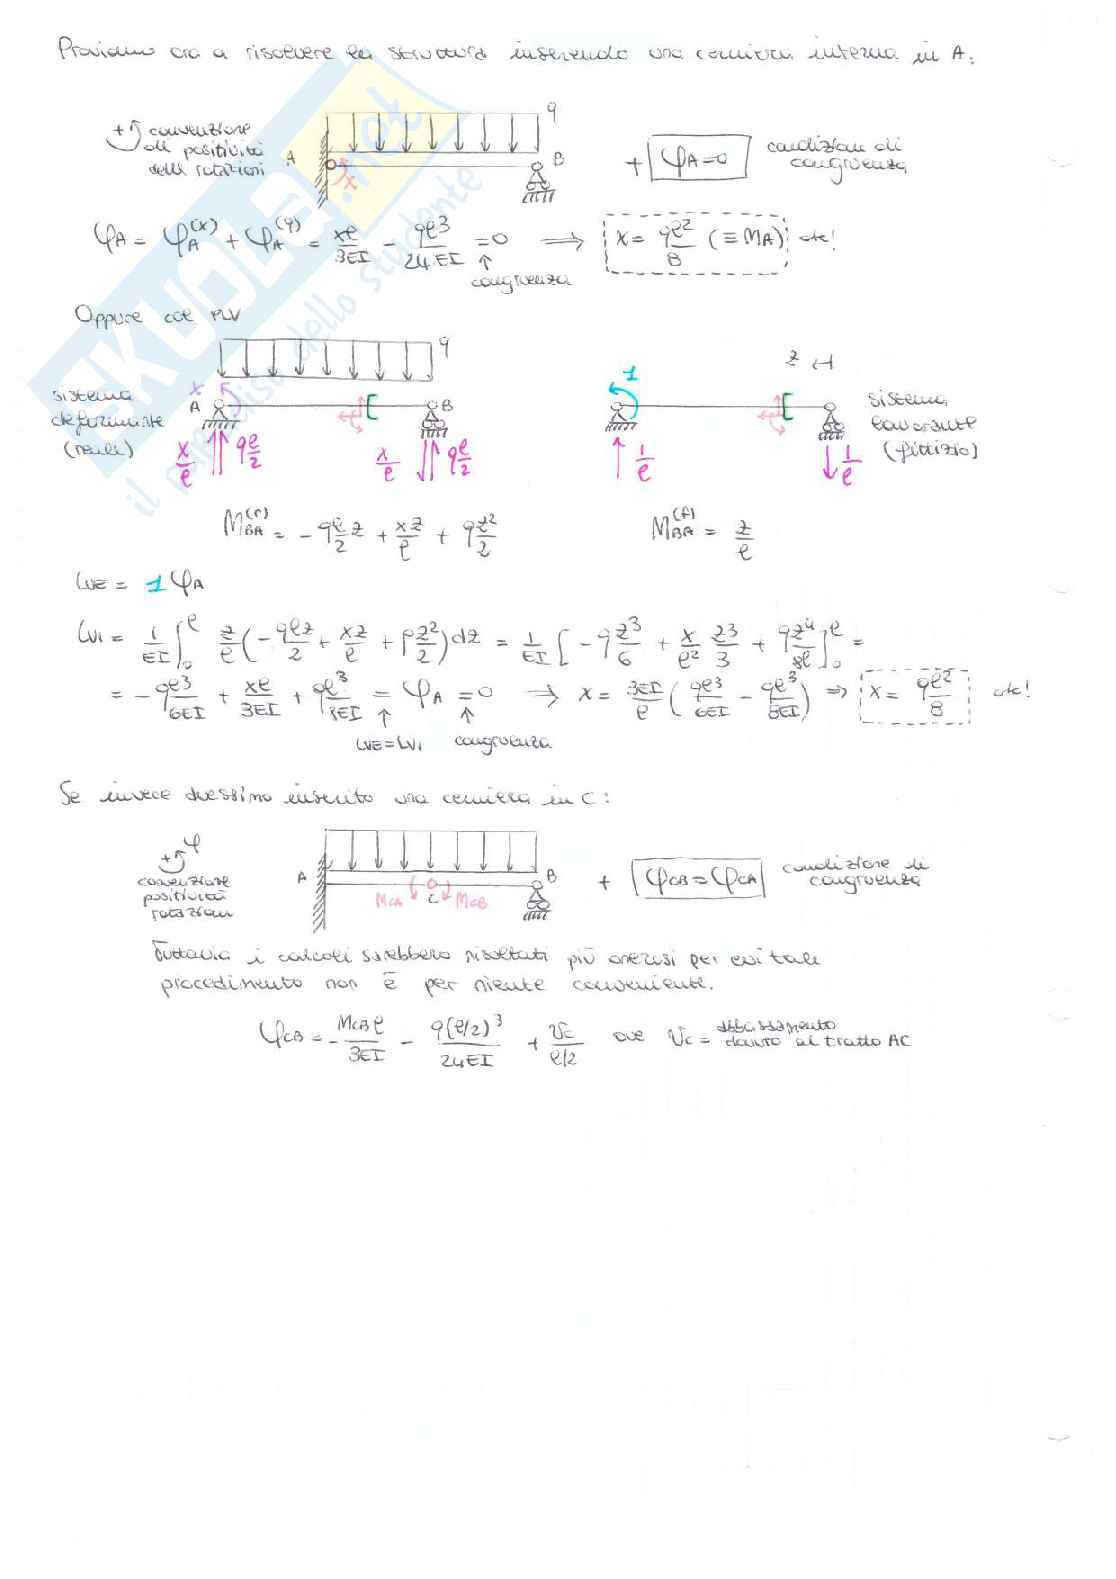 Proviamo ora a risolvere la struttura inserendo una cerniera interna in A:
+ convenzione di positività delle rotazioni
A B q X
+ φA=0 condizioni di congruenza
φA = φA(x) + φA(q) = xℓ/3EI - qℓ³/24EI = 0 ⟹ x = qℓ²/8 (≡ MA) ok!
↑ congruenza
Oppure col PLV
sistema deformante (reale)
X A B q
x/ℓ qℓ/2 x/ℓ qℓ/2
1 z
1/ℓ 1/ℓ
sistema lavorante (fittizio)
MBA(r) = - qℓ/2 z + xz/ℓ + qz²/2
MBA(f) = z/ℓ
LVE = 1 φA
LVI = 1/EI ∫₀ℓ z/ℓ (- qℓz/2 + xz/ℓ + q z²/2) dz = 1/EI [ - q z³/6 + x/ℓ² z³/3 + q z⁴/8ℓ ]₀ℓ =
= - qℓ³/6EI + xℓ/3EI + qℓ³/8EI = φA = 0 → x = 3EI/ℓ ( qℓ³/6EI - qℓ³/8EI ) ⇒ x = qℓ²/8 ok!
↑ LVE=LVI ↑ congruenza
Se invece avessimo inserito una cerniera in C:
+ φ convenzione positività rotazioni
A B MCA C MCB
+ φCB = φCA condizione di congruenza
Tuttavia i calcoli sarebbero risultati più onerosi per cui tale
procedimento non è per niente conveniente.
φCB = - MCB ℓ/3EI - q(ℓ/2)³/24EI + VC/ℓ/2 ove VC = abbassamento dovuto al tratto AC
SKUOLA.net
il paradiso dello studente